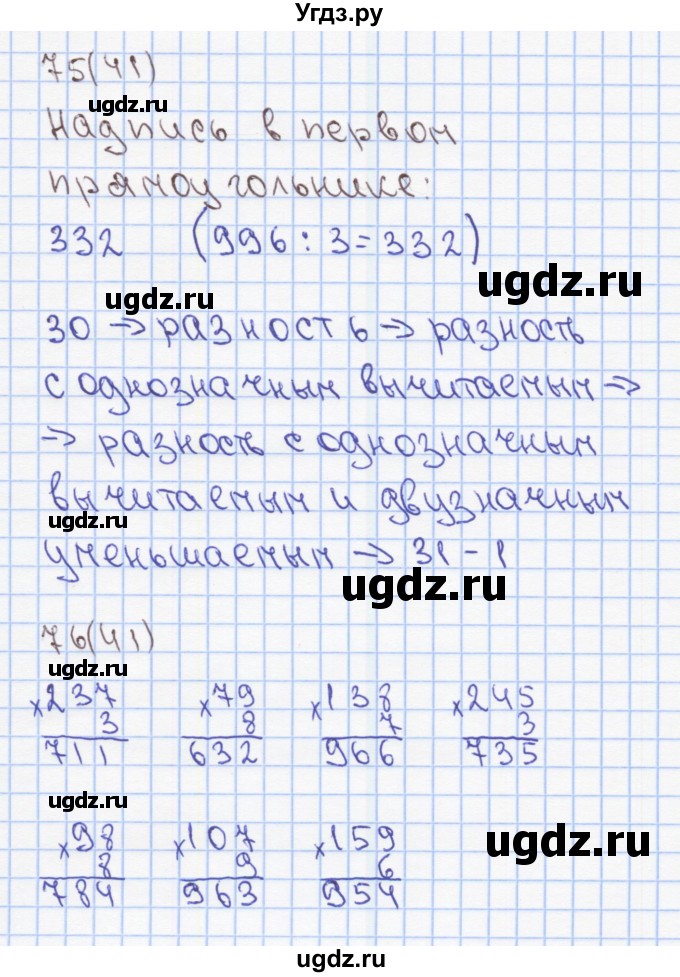 Угдз.ру
75(41)
ugdz.ru
Надпись в первом
прямоугольнике:
332 (996 : 3 = 332)
ugdz.ru
ugdz.ru
30 → разность → разность
с однозначным вычитаемым →
→ разность с однозначным
вычитаемым и двузначным
ugdz.ru
уменьшаемым → 31 - 1
ugdz.ru
76(41)
ugdz.ru
×237 ×79 ×138 ×245
3 8 7 3
711 632 966 735
ugdz.ru
×98 ×107 ×159
ugdz.ru
8 9 6
784 963 954
ugdz.ru
ugdz.ru